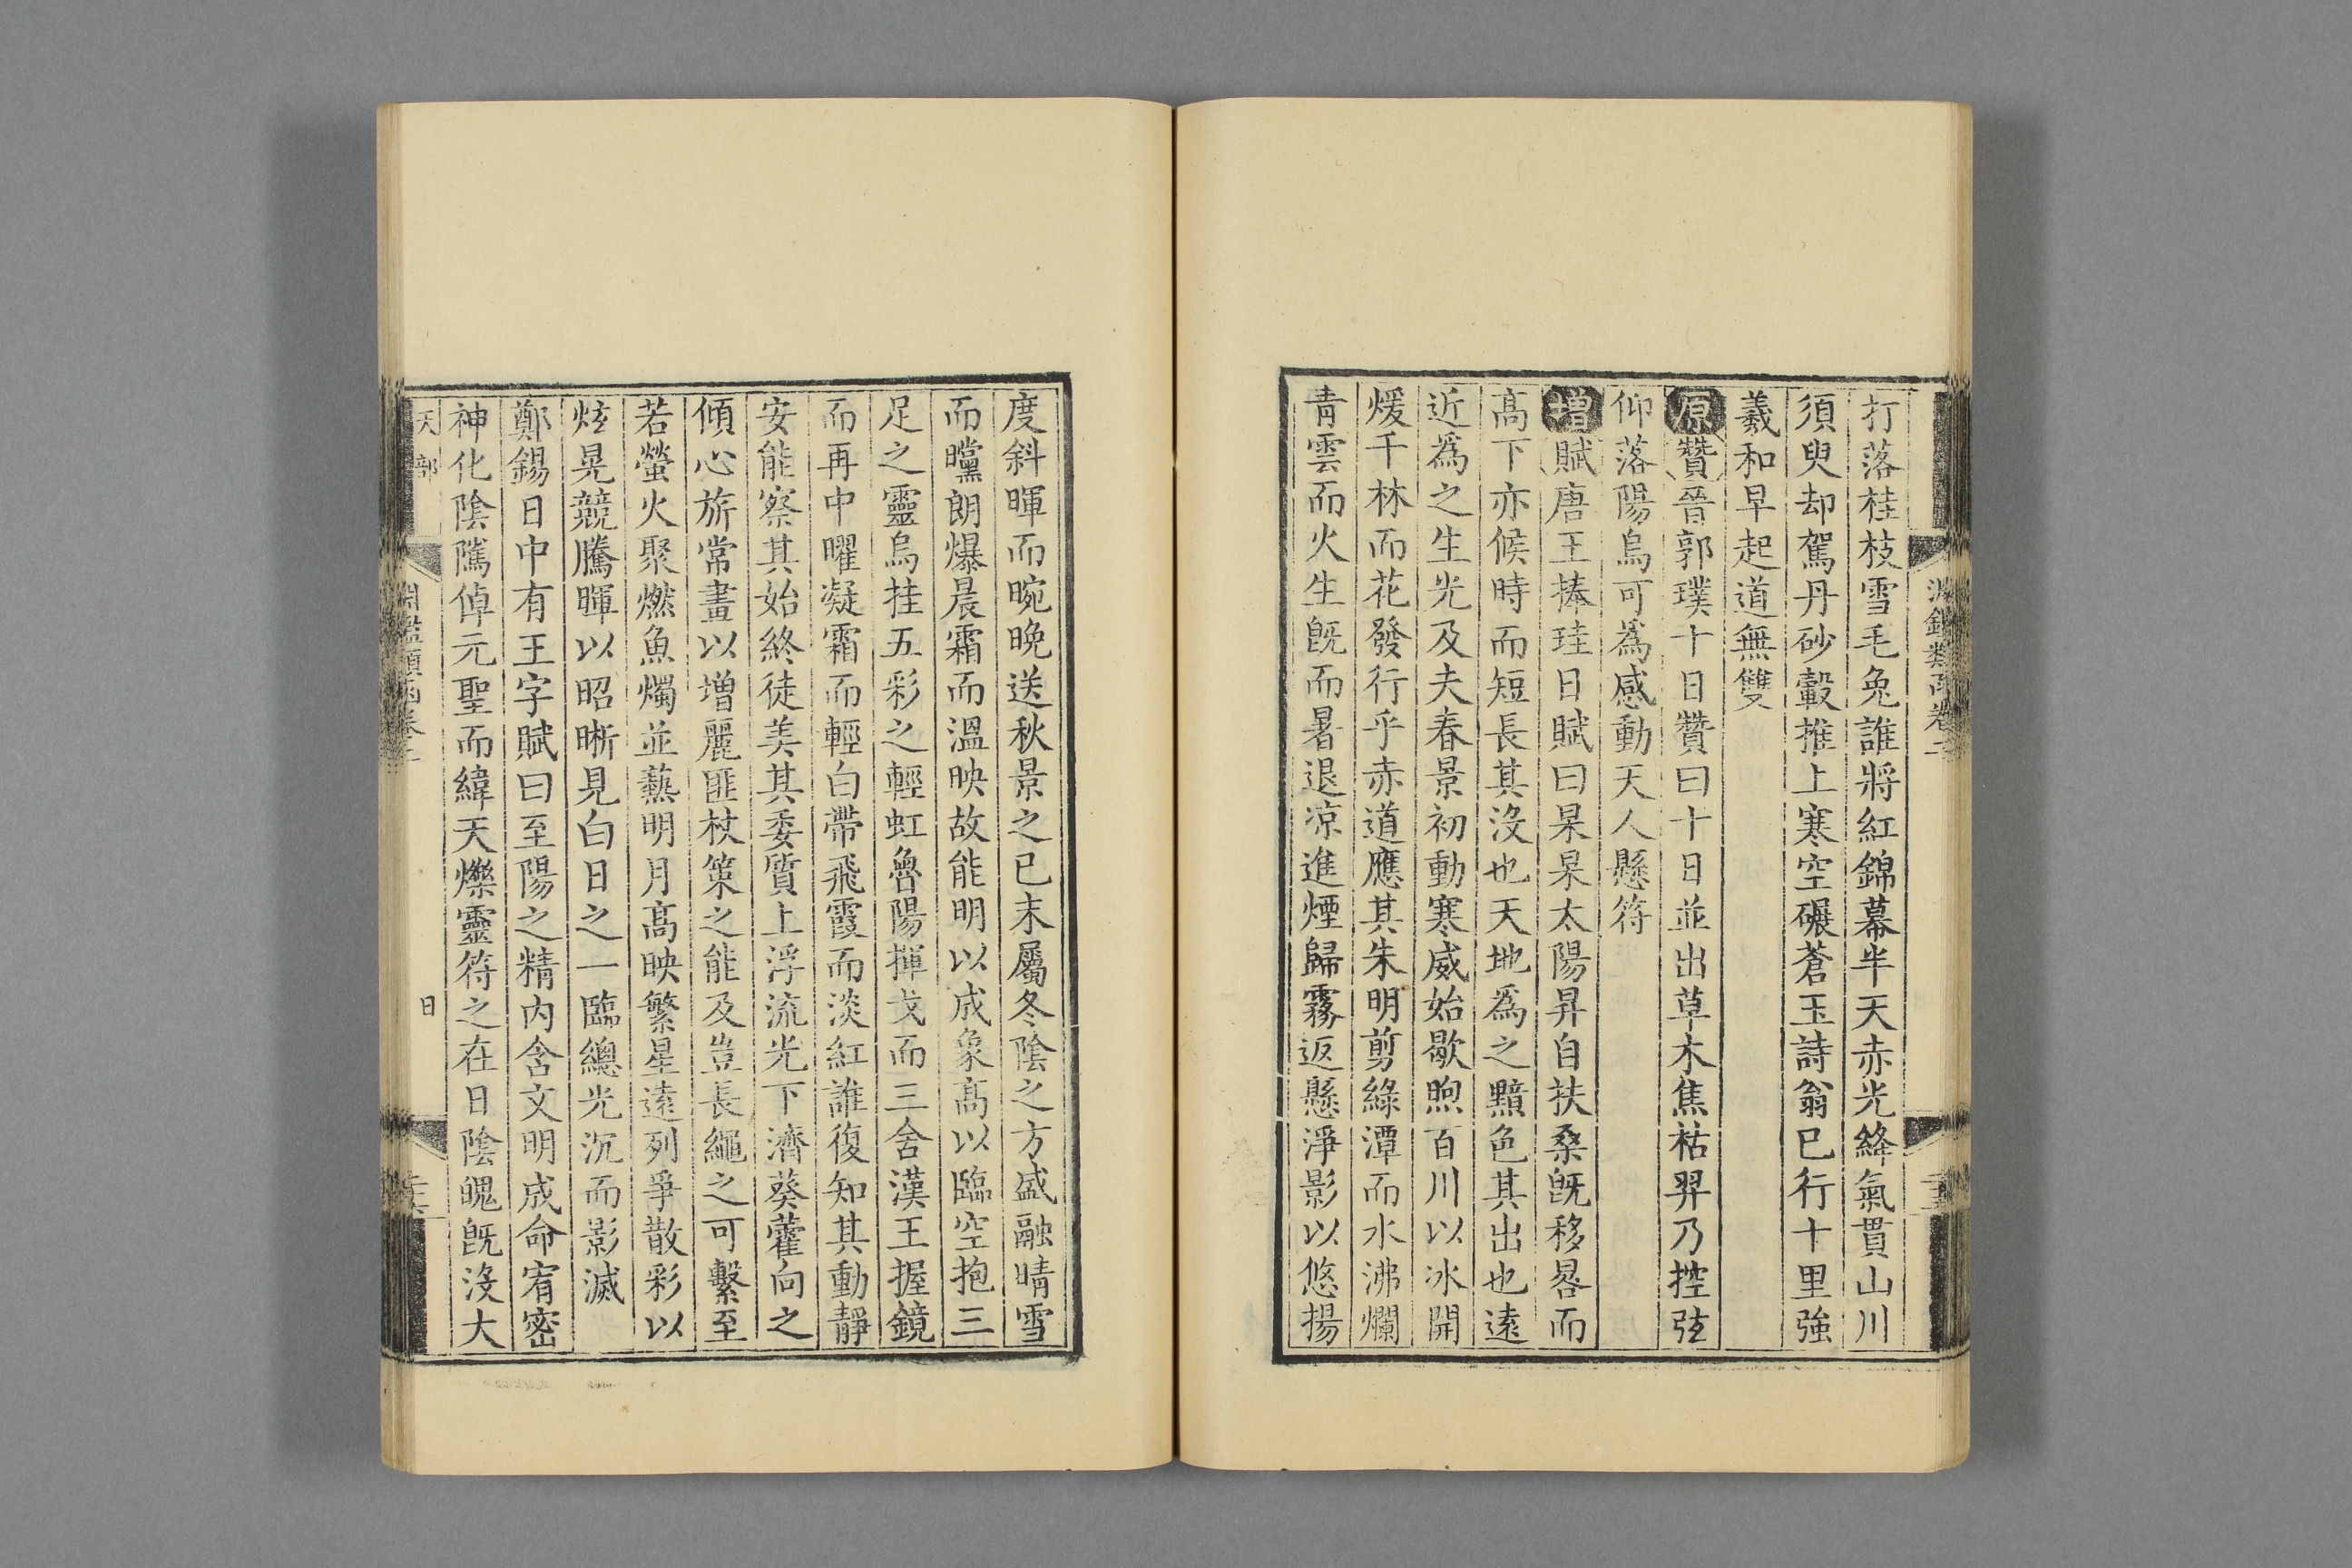 打落桂枝雪毛兔誰將紅錦幕半天赤光絳氣貫山川
須臾却駕丹砂轂推上寒空碾蒼玉詩翁已行十里強
羲和早起道無雙
原贊晉郭璞十日贊曰十日並出草木焦枯羿乃控弦
仰落陽烏可為感動天人懸符
增賦唐王捧珪日賦曰杲杲太陽昇自扶桑旣移晷而
高下亦候時而短長其沒也天地為之黯色其出也遠
近為之生光及夫春景初動寒威始歇煦百川以冰開
煖千林而花發行乎赤道應其朱明剪綠潭而水沸爛
青雲而火生旣而暑退涼進煙歸霧返懸淨影以悠揚
度斜暉而晼晚送秋景之已末屬冬陰之方盛融晴雪
而曭朗爆晨霜而溫映故能明以成象高以臨空抱三
足之靈烏挂五彩之輕虹魯陽揮戈而三舍漢王握鏡
而再中曜凝霜而輕白帶飛霞而淡紅誰復知其動靜
安能察其始終徒美其委質上浮流光下濟葵藿向之
傾心旂常畫以增麗匪杖策之能及豈長繩之可繫至
若螢火聚燃魚燭並爇明月高映繁星遠列爭散彩以
炫晃競騰暉以昭晣見白日之一臨總光沉而影滅
鄭錫日中有王字賦曰至陽之精內含文明成命宥密
神化陰隲倬元聖而緯天爍靈符之在日陰魄旣沒大
天部
淵鑑類函卷二
日